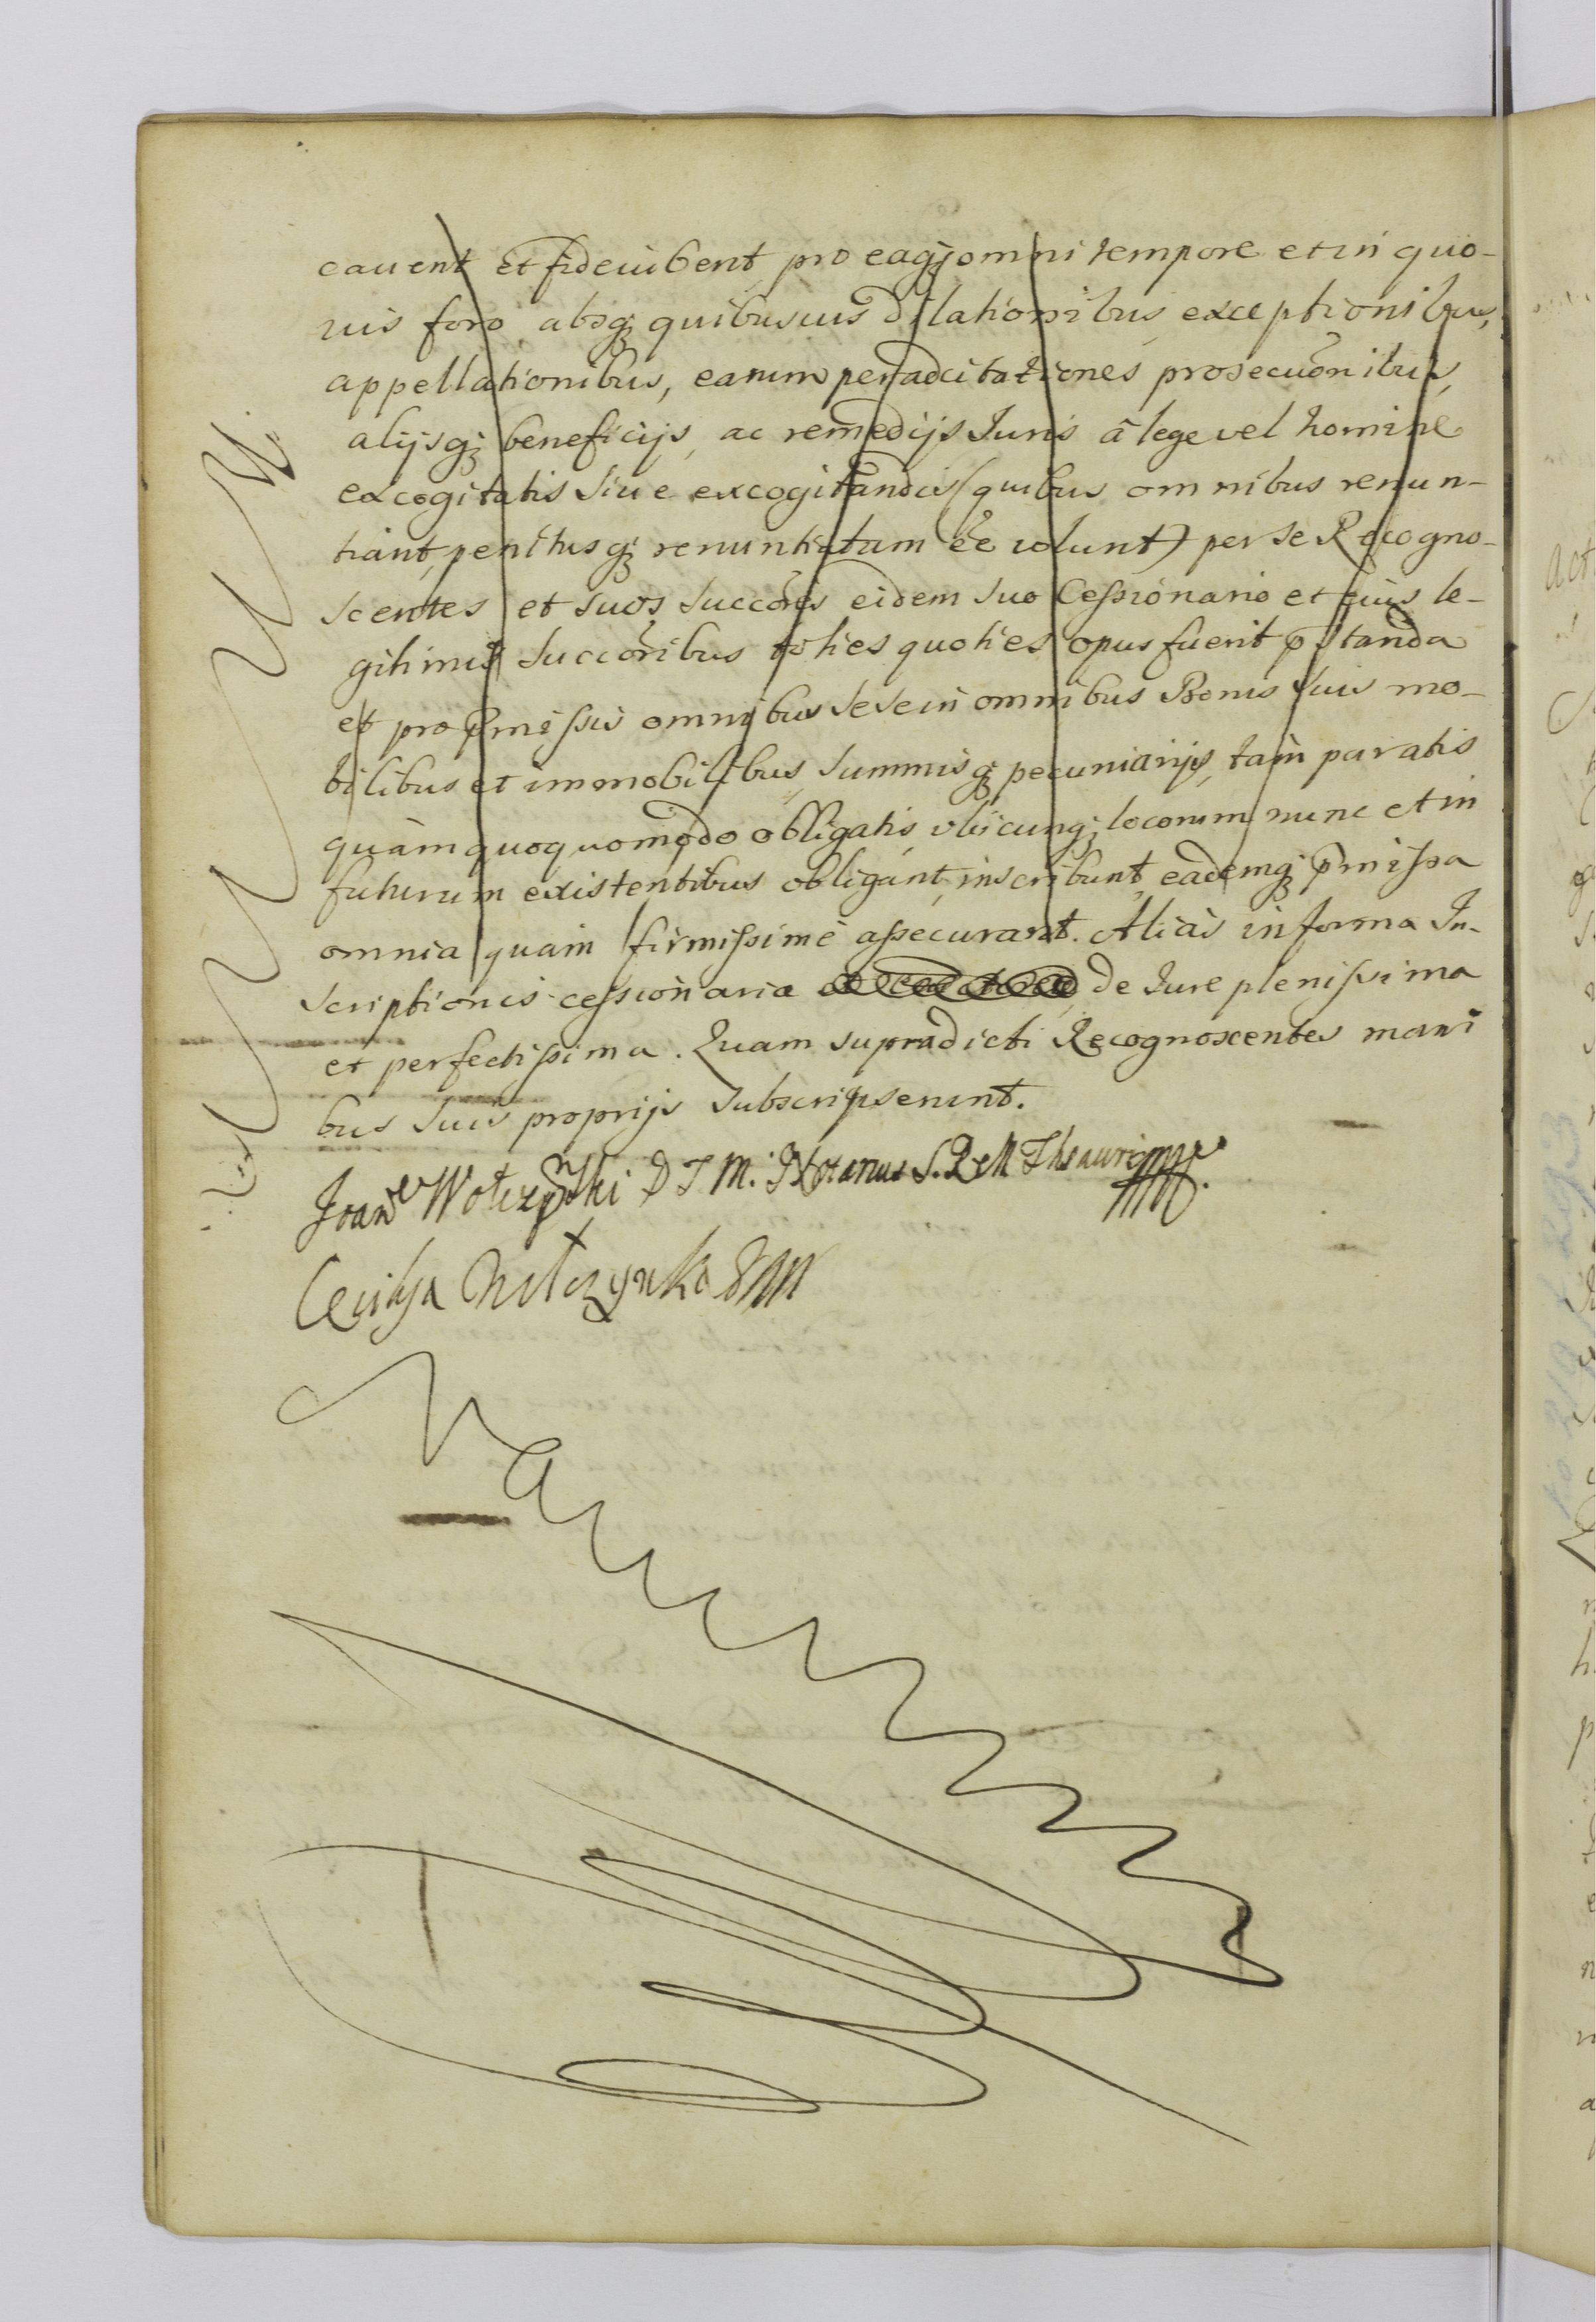 cavent et fideiubent pro eaq; omni tempore et in quo-
uis foro, absq; quibusuis dilationibus exceptionibus,
appellationibus, earum per adcitationes prosecuõnibus,
alijsq; beneficijs, ac remedijs Juris â lege vel homine
excogitatis siue excogitandis (quibus omnibus renun-
tiant, penitusq; renuntiatum ẽe volunt) per se Recogno-
scentes et suos succõres eidem suo Cessionario et eius le-
gitimis succõribus toties quoties opus fuerit p̃standa
et pro p̃missis omnibus sese in omnibus Bonis suis mo-
bilibus et immobilibus, summisq; pecuniarijs, tam paratis
quàm quoquomodo obligatis, vbicunq; locorum nunc et in
futurum existentibus obligant, inscribunt, eademq; p̃missa
omnia quam firmissimè assecurant. Aliàs in forma In-
scriptionis cessionariæ de Jure plenissima
et perfectissima. Quam supradicti Recognoscentes mani
bus suis proprijs subscripserunt.
Joan Wołczynski D T M. Notarius S. R M Thsauri mp.
Cecilija